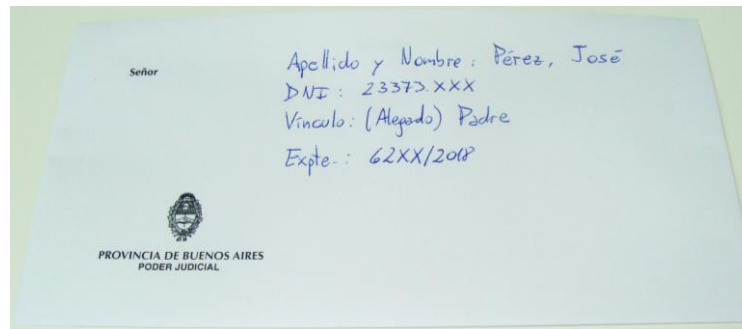 Señor
Apellido y Nombre: Pérez, José
DNI: 23373.XXX
Vínculo: (Alegado) Padre
Expte.: 62XX/2018
PROVINCIA DE BUENOS AIRES
PODER JUDICIAL